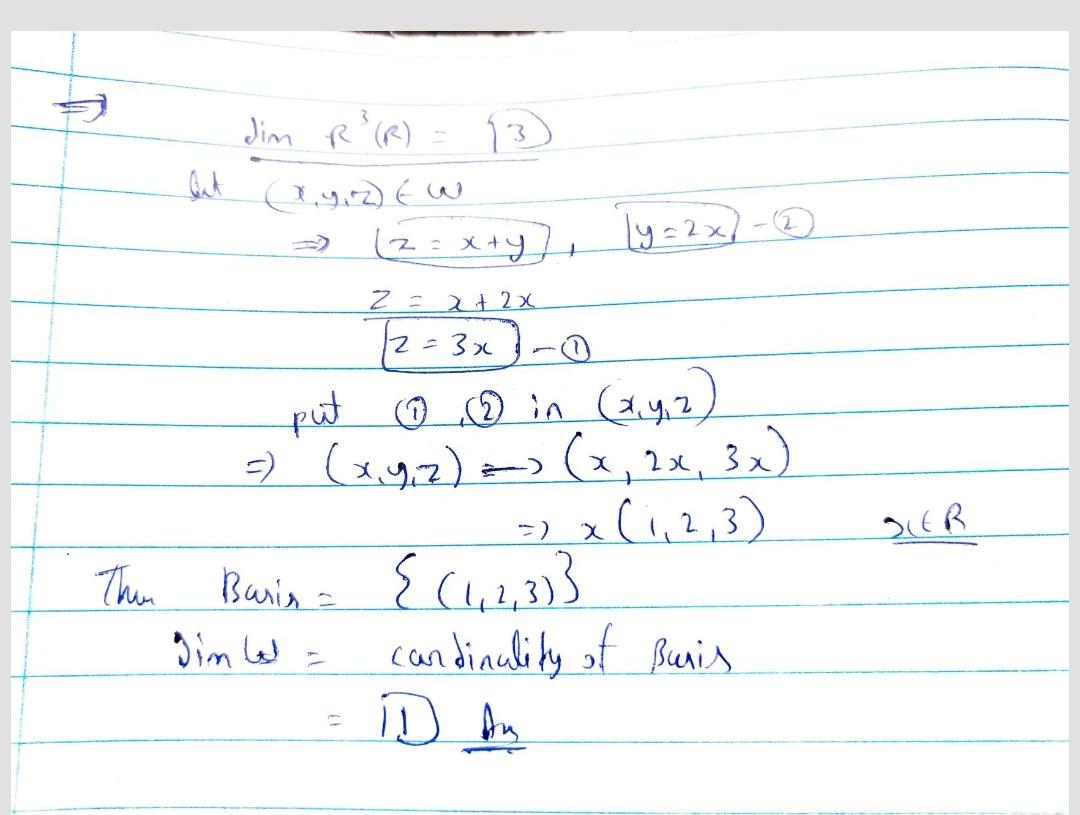 ⇒
dim R³(R) = 3
let (x,y,z) ∈ W
⇒ z = x+y , y = 2x - ②
z = x + 2x
z = 3x - ①
put ① , ② in (x,y,z)
⇒ (x,y,z) → (x, 2x, 3x)
⇒ x(1,2,3) x ∈ R
Then Basis = { (1,2,3)}
Dim W = cardinality of Basis
= 1 Ans